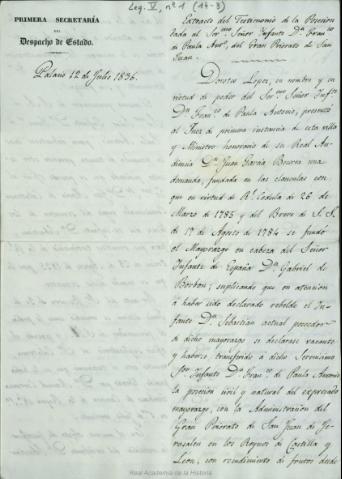 Leg. V, nº 1 (14-3)
PRIMERA SECRETARÍA
DEL
Despacho de Estado.
Palacio 12 de Julio 1836.
Extracto del Testimonio de la Posesion
dada al Ser.mo Señor Infante Dn Fran.co
de Paula Ant.o del Gran Priorato de San
Juan.
Doroteo Lopez, en nombre y en
virtud de poder del Ser.mo Señor Inf.te
Dn Fran.co de Paula Antonio, presentó
al Juez de primera instancia de esta villa
y Ministro honorario de su Real Au-
diencia Dn Juan Garcia Becerra una
demanda, fundada en las clausulas con
que en virtud de Rl Cedula de 26 de
Marzo de 1785 y del Breve de S. S.
de 17 de Agosto de 1784 se fundó
el Mayorazgo en cabeza del Señor
Infante de España Dn Gabriel de
Borbon; suplicando que en atencion
á haber sido declarado rebelde el In-
fante Dn Sebastian actual poseedor
de dicho mayorazgo se declarase vacante
y haberse transferido á dicho Serenisimo
Sor Infante Dn Fran.co de Paula Antonio
la posesion civil y natural del expresado
mayorazgo, con la Administracion del
Gran Priorato de San Juan de Je-
rusalen en los Reynos de Castilla y
Leon, con rendimiento de frutos desde
Real Academia de la Historia